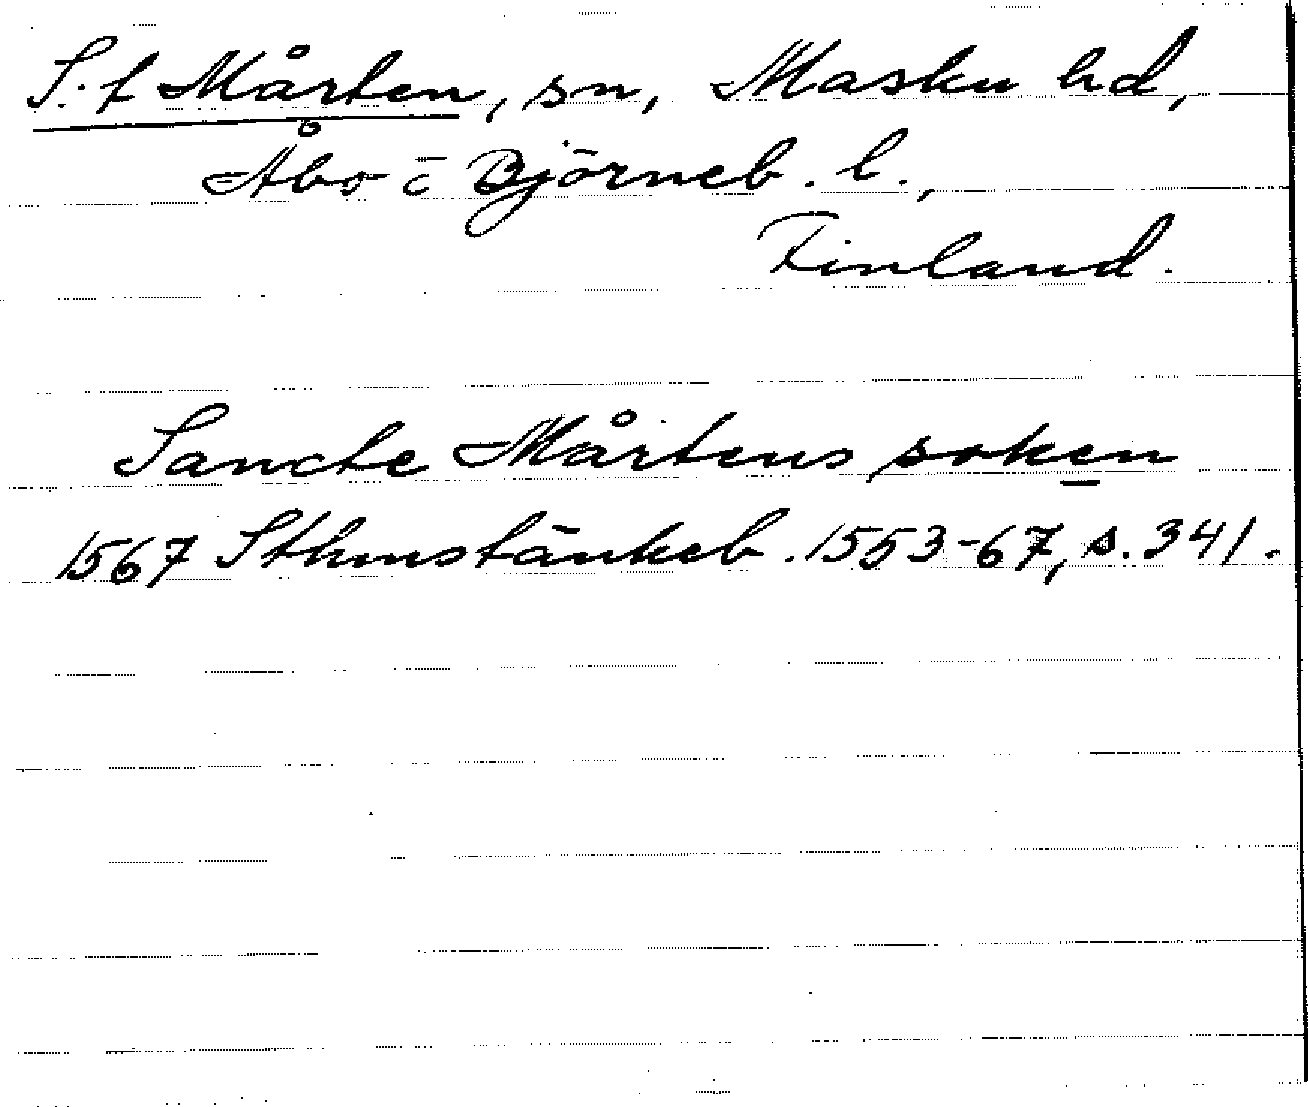 S:t Mårten, sn, Masku hd,
Åbo o Björneb. l.,
Finland.
Sancte Mårtens soken
1567 Sthmstänkeb. 1553-67, s. 341.